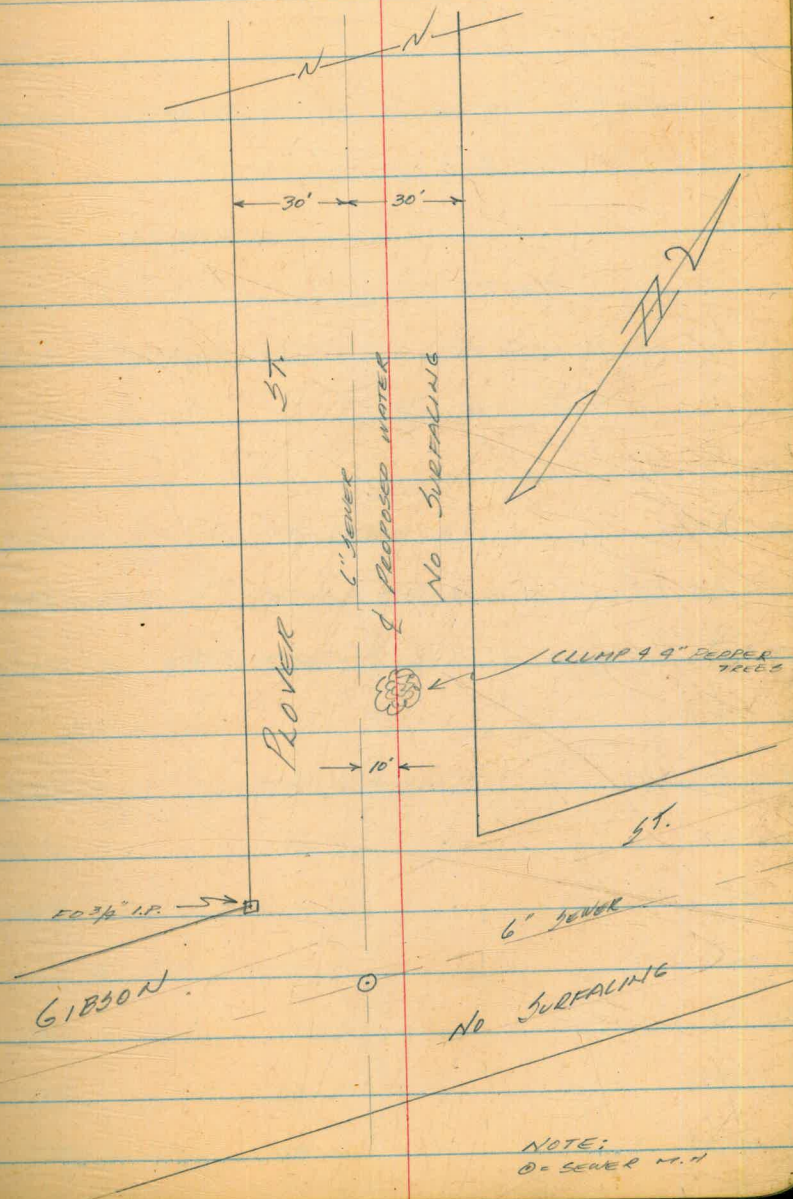 30' 30'
PLOVER ST.
6" SEWER
℄ PROPOSED WATER
NO SURFACING
CLUMP 4 4" PEPPER
TREES
10'
ST.
FD 3/4" I.P.
6" SEWER
GIBSON
NO SURFACING
NOTE:
⊙ = SEWER M.H